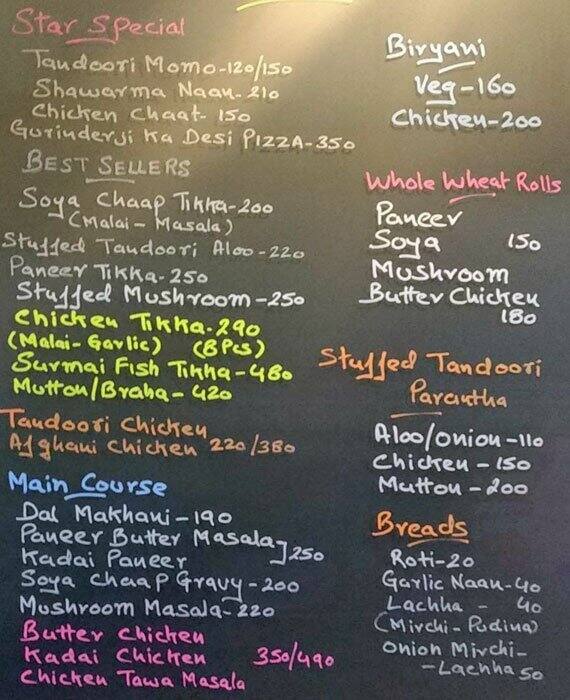 Star Special
Tandoori Momo-120/150
Shawarma Naan-210
Chicken Chaat-150
Gurinderji Ka Desi PIZZA-350
BEST SELLERS
Soya Chaap Tikka-200
(Malai-Masala)
Stuffed Tandoori Aloo-220
Paneer Tikka-250
Stuffed Mushroom-250
Chicken Tikka-290
(Malai-Garlic) (8Pcs)
Surmai Fish Tikka-480
Mutton/Braha-420
Tandoori Chicken
Afghani Chicken 220/380
Main Course
Dal Makhani-190
Paneer Butter Masala
Kadai Paneer ]250
Soya Chaap Gravy-200
Mushroom Masala-220
Butter Chicken
Kadai Chicken 350/490
Chicken Tawa Masala
Biryani
Veg-160
Chicken-200
Whole Wheat Rolls
Paneer
Soya 150
Mushroom
Butter Chicken
180
Stuffed Tandoori
Parantha
Aloo/onion-110
Chicken-150
Mutton-200
Breads
Roti-20
Garlic Naan-40
Lachha - 40
(Mirchi-Pudina)
onion Mirchi-
-Lachha 50